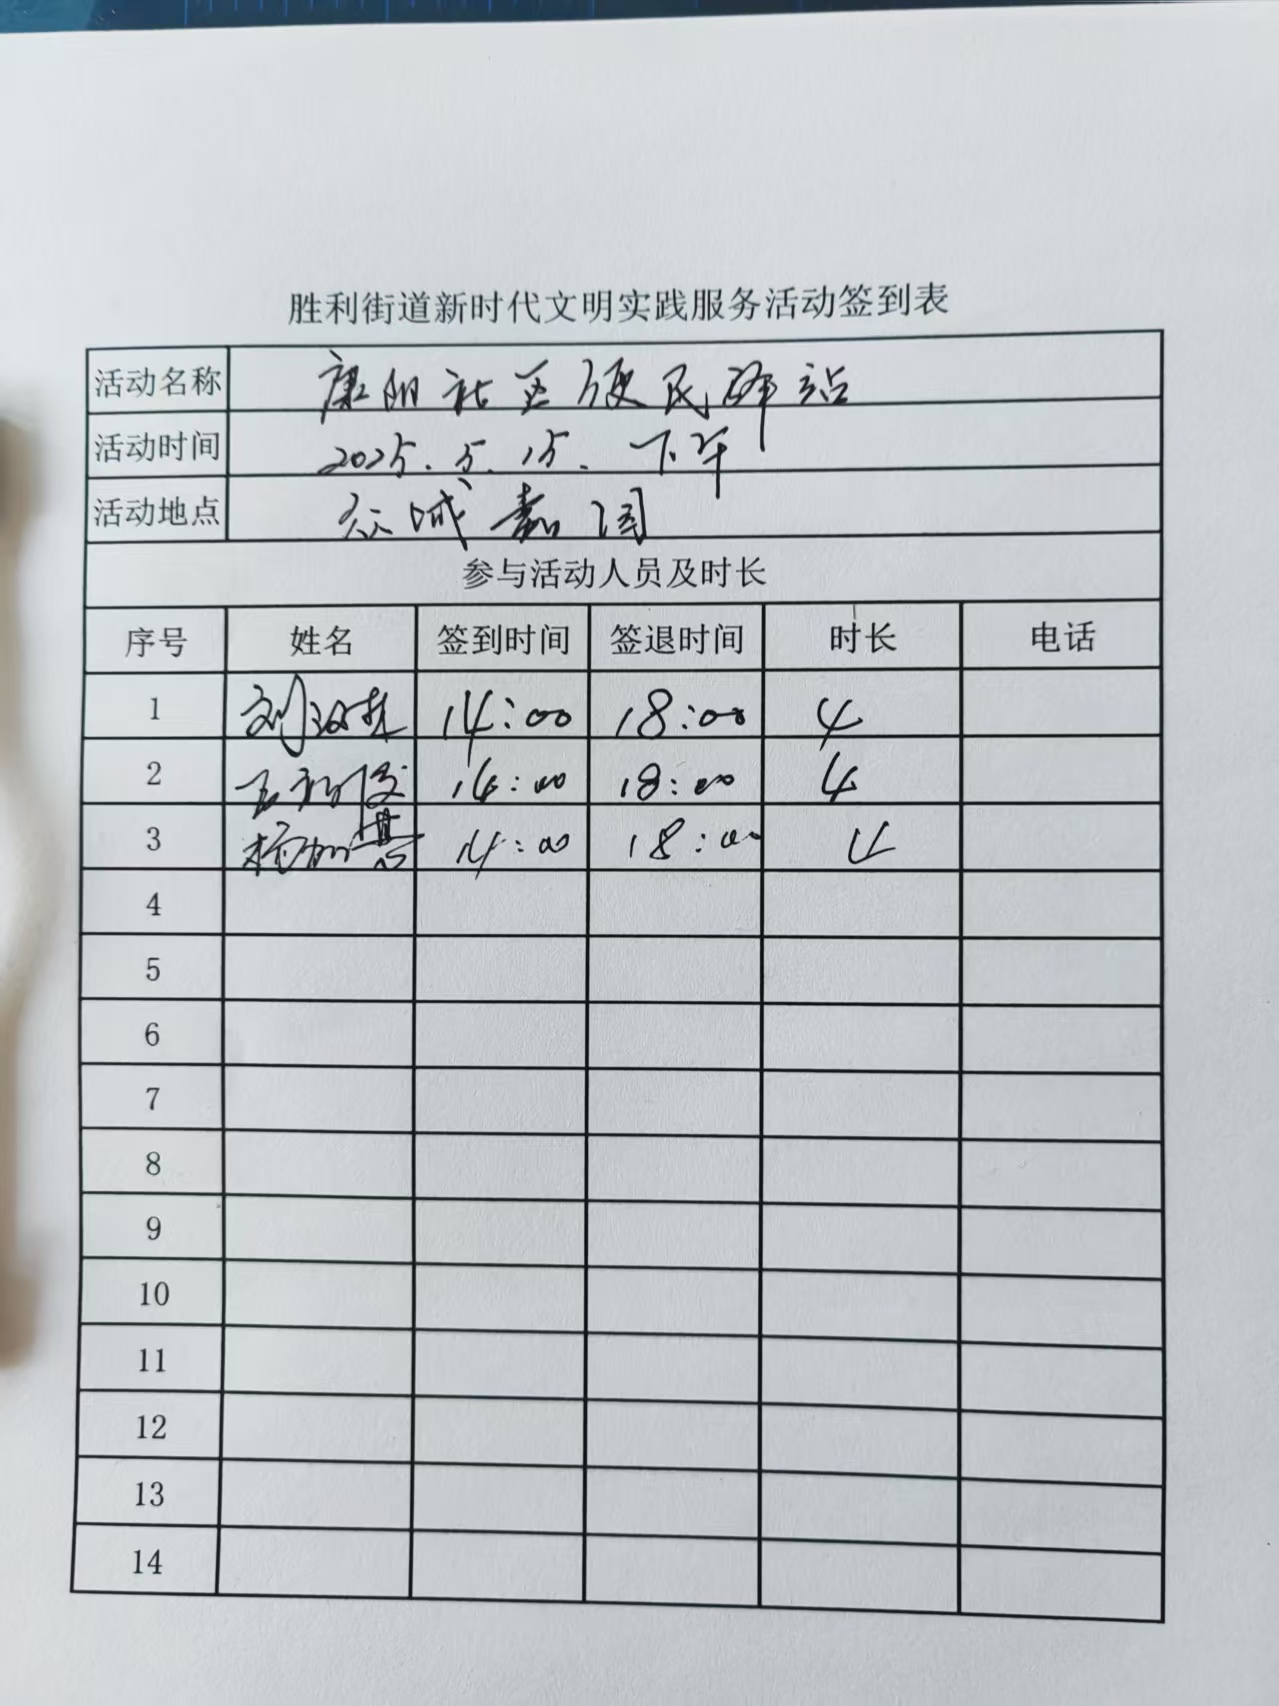 胜利街道新时代文明实践服务活动签到表
活动名称 康阳社区便民驿站
活动时间 2025.5.15. 下午
活动地点 众城嘉园
参与活动人员及时长
序号 姓名 签到时间 签退时间 时长 电话
1 刘 14:00 18:00 4
2 王 14:00 18:00 4
3 杨 14:00 18:00 4
4
5
6
7
8
9
10
11
12
13
14